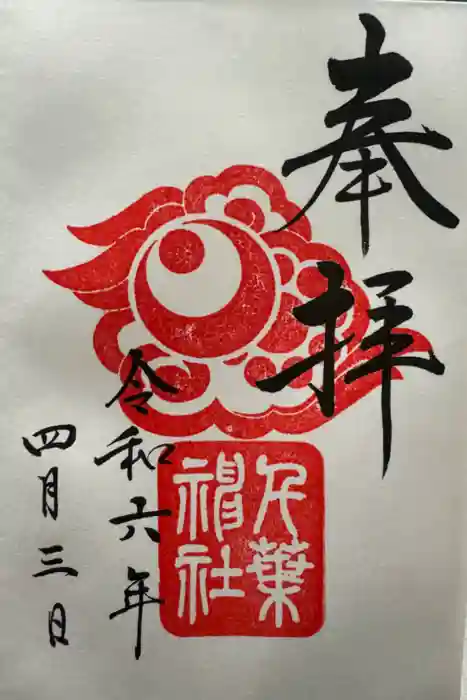 奉拝
千葉
神社
令和六年
四月三日